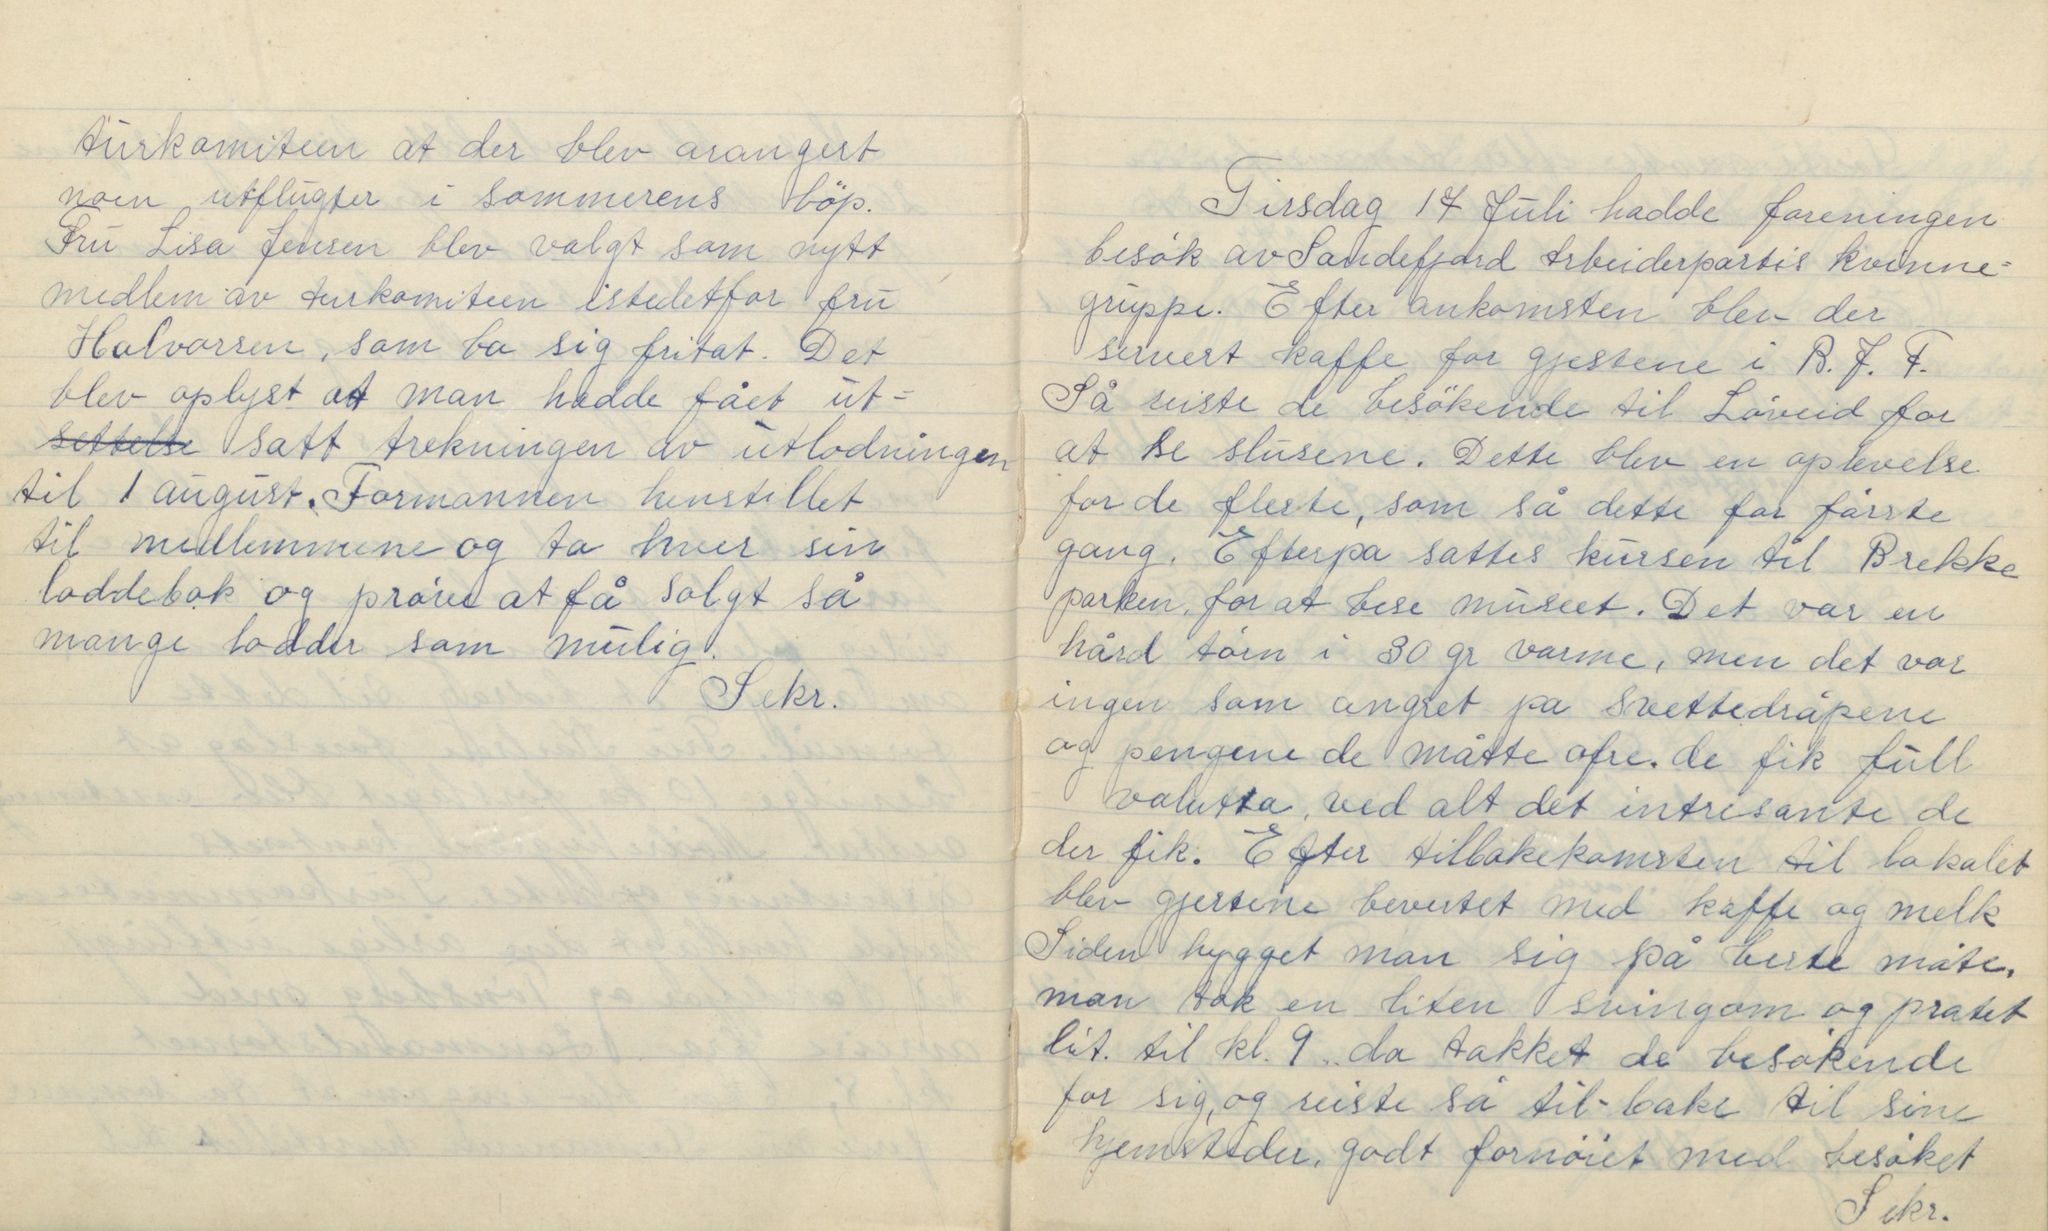 turkomiteen at der blev arangert
noen utflugter i sommerens löp.
Fru Lisa Jensen blev valgt som nytt
medlem av turkomiteen istedetfor fru
Halvorsen, som ba sig fritat. Det
blev oplyst at man hadde fået ut-
settelse satt trekningen av utlodningen
til 1 august. Formannen henstillet
til medlemmene og ta hver sin
loddebok og pröve at få solgt så
mange lodder som mulig.
Sekr.
Tirsdag 17 Juli hadde foreningen
besök av Sandefjord Arbeiderpartis kvinne-
gruppe. Efter ankomsten blev der
servert kaffe for gjestene i R. J. F.
Så reiste de besökende til Löveid for
at se slusene. Dette blev en oplevelse
for de fleste, som så dette for förste
gang. Efterpa sattes kursen til Brekke
parken, for at bese museet. Det var en
hård törn i 30 gr varme, men det var
ingen som angret pa svettedråpene
og pengene de måtte ofre. de fik full
valutta, ved alt det intresante de
der fik. Efter tilbakekomsten til lokalet
blev gjestene bevertet med kaffe og melk
Siden hygget man sig på beste måte,
man tok en liten svingom og pratet
lit. til kl. 9.. da takket de besökende
for sig, og reiste så til-bake til sine
hjemsteder, godt fornöiet med besöket
Sekr.